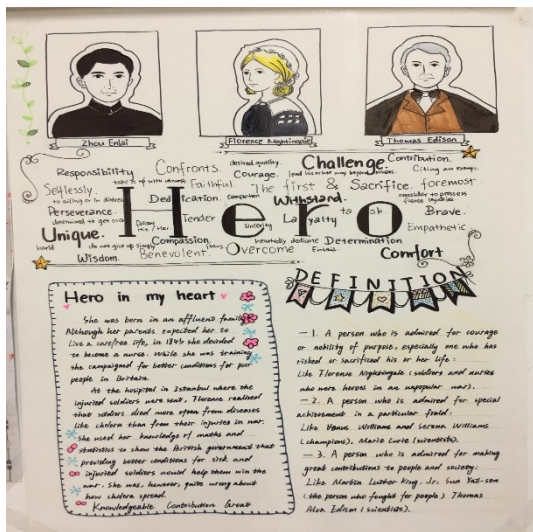 Zhou Enlai
Florence Nightingale
Thomas Edison
Responsibility
Confronts.
desired quality.
Challenge.
Contribution.
Selflessly.
Faithful.
Courage.
The first & Sacrifice. foremost
Perseverance.
Dedication.
Withstand.
Brave.
Hero
Tender
sincerity
Loyalty
Empathetic
Unique.
do not give up simply
Compassion.
heartedly dedicate
Determination
hard
Wisdom.
Benevolent.
Overcome
Comfort
DEFINITION
Hero in my heart
She was born in an affluent family
Although her parents expected her to
live a carefree life, in 1845 she decided
to become a nurse. While she was training
she campaigned for better conditions for poor
people in Britain.
At the hospital in Istanbul where the
injured soldiers were sent, Florence realized
that soldiers died more often from diseases
like cholera than from their injuries in war.
She used her knowledge of maths and
statistics to show the British government that
providing better conditions for sick and
injured soldiers would help them win the
war. She was, however, quite wrong about
how cholera spread.
Knowledgeable Contribution Great
— 1. A person who is admired for courage
or nobility of purpose, especially one who has
risked or sacrificed his or her life:
Like Florence Nightingale (soldiers and nurses
who were heroes in an unpopular war).
— 2. A person who is admired for special
achievement in a particular
Like Venus Williams and Serena Williams
(champions), Marie Curie (scientists).
— 3. A person who is admired for making
great contributions to people and society:
Like Martin Luther King, Jr. Sun Yat-sen
(the person who fought for people) Thomas
Alva Edison (scientists).